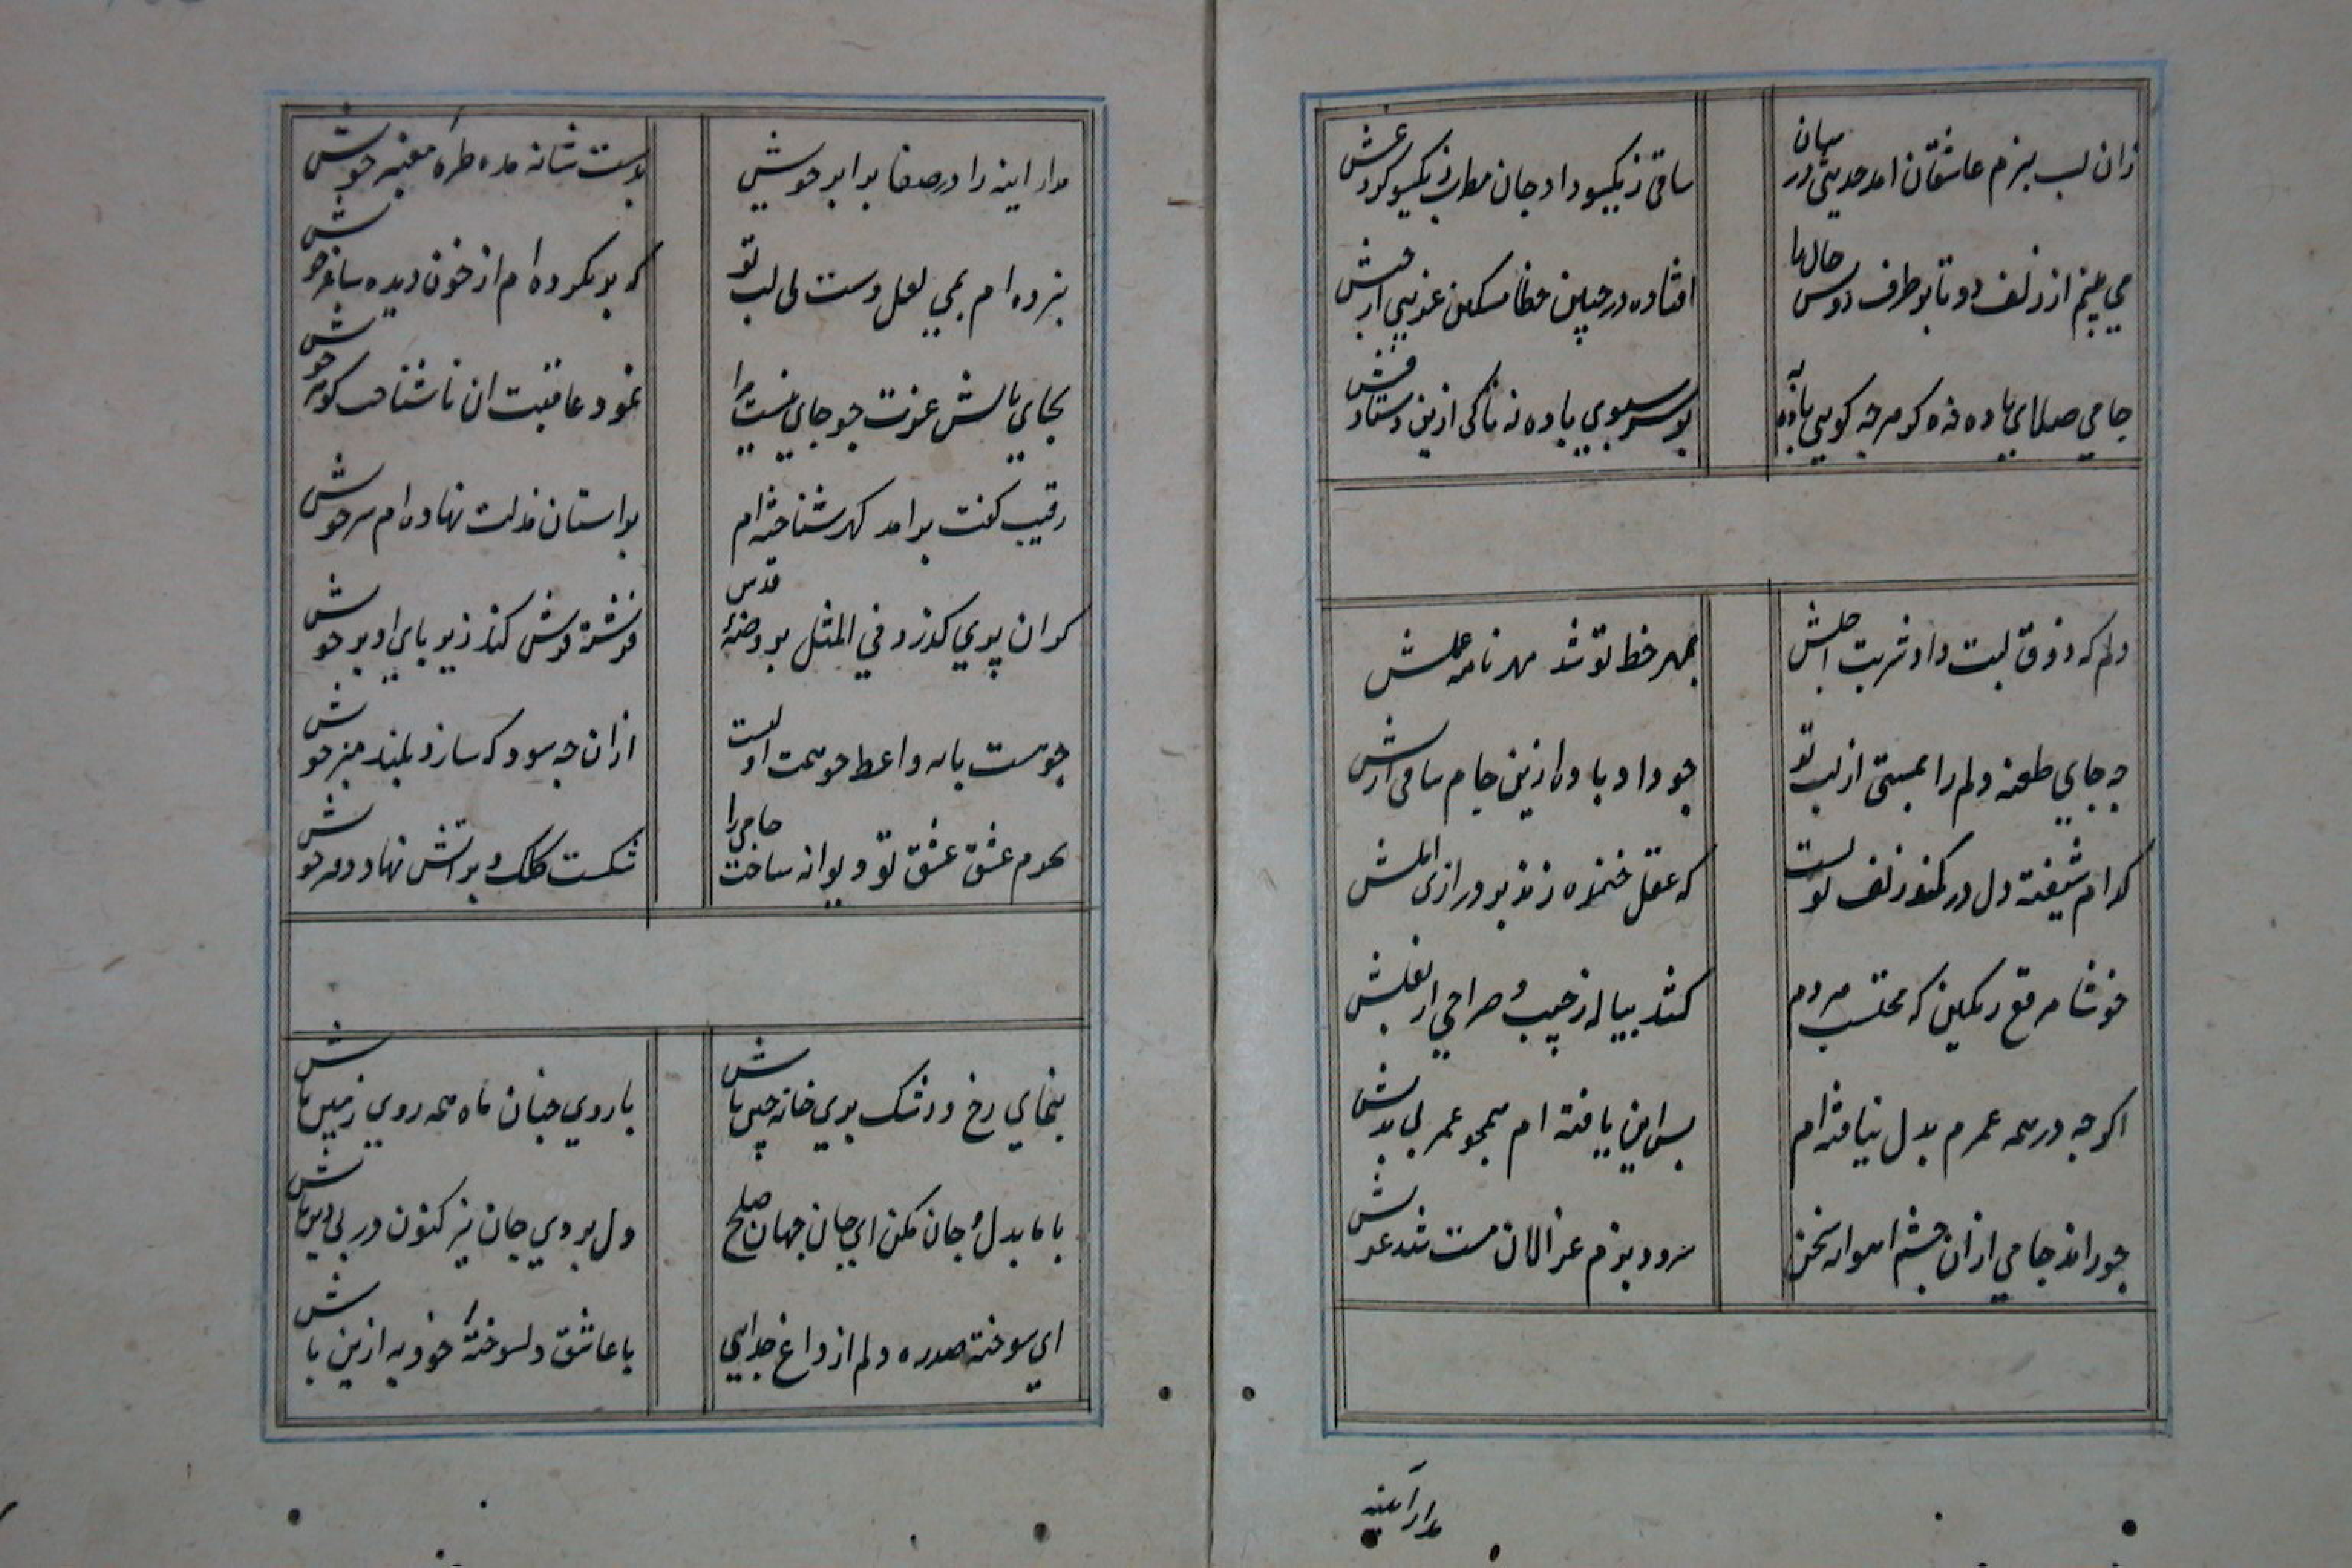 زان لب بزم عاشقان امد حدیثی در میان
ساقی ز یکسو داد جان مطرب ز یکسو کرد غش
می بینم از زلف دو تا بر طرف دوش خال ها
افتاده در چین خطا مسکین غریبی از حبش
جامی صلاای باده خه کو هر چه کویی باده به
بر سر سبوی باده نه تا کی ازین دستار فش
دلم که ذوق لبت داد شربت اجلش
بمهر خط تو شد مهر نامه عملش
چه جای طعنه دلم را بمستی از لب تو
جو داد باده ازین جام ساقی ازلش
کدام شیفته دل در کمند زلف تو است
که عقل خنده نزند بر درازی املش
خوشا مرقع رنکین که محتسب مردم
کشد پیاله ز جیب و صراحی از بغلش
اکر چه در همه عمرم بدل نیافته ام
بس این یافته ام همجو عمر بی بدلش
جو راند جامی از ان چشم اهوانه سخن
سرود بزم غزالان مست شد غزلش
مدار آینه
مدار اینه را در صفا برابر خویش
بدست شانه مده طره معنبر خویش
نبرده ام بمی لعل دست بی لب تو
که بر نکرده ام از خون دیده ساغر خویش
بجای بالش عزت جو جای نیست مرا
بر استان مذلت نهاده ام سر خویش
رقیب کفت بر امد کهر شناخته ام
نمود عاقبت ان ناشناخت کوهر خویش
کر ان پری کذرد فی المثل بروضه قدس
فرشته فرش کند زیر پای او پر خویش
جو پست پایه واعظ جو همت او است
ازان جه سود که سازد بلند منبر خویش
عشق تو دیوانه ساخت جامی را
شکست کلک و بر اتش نهاد دفتر خویش
بنمای رخ و رشک پری خانه چین باش
با روی جنان ماه همه روی زمین باش
با ما بدل و جان مکن ای جان جهان صلح
دل بردی جان نیز کنون در پی دین باش
ای سوخته صدره دلم از داغ جدایی
با عاشق دلسوخته خود به ازین باش